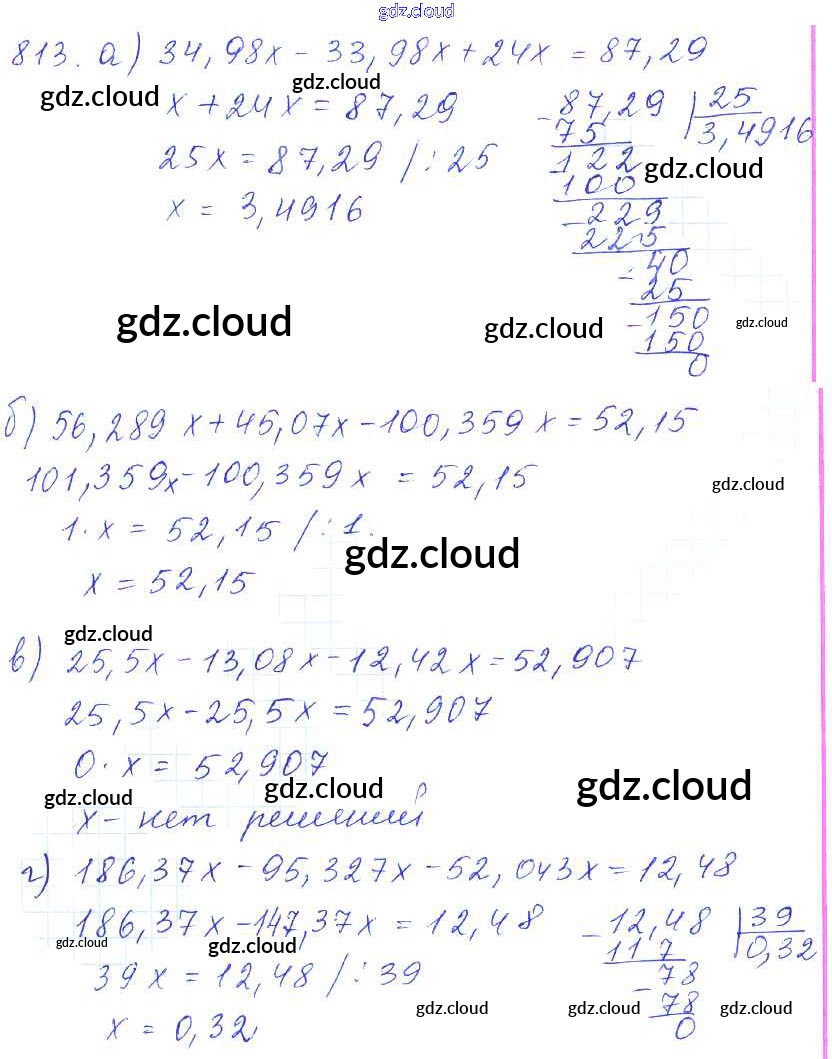 gdz.cloud
813. а) 34,98x - 33,98x + 24x = 87,29
gdz.cloud gdz.cloud
x + 24x = 87,29
25x = 87,29 /: 25
x = 3,4916
- 87,29 | 25
75 3,4916
- 122 gdz.cloud
100
- 229
225
- 40
25
- 150
150
0
gdz.cloud gdz.cloud gdz.cloud
б) 56,289x + 45,07x - 100,359x = 52,15
101,359x - 100,359x = 52,15
gdz.cloud
1·x = 52,15 /: 1.
gdz.cloud
x = 52,15
gdz.cloud
в) 25,5x - 13,08x - 12,42x = 52,907
25,5x - 25,5x = 52,907
0·x = 52,907
gdz.cloud gdz.cloud gdz.cloud
x - нет решений
г) 186,37x - 95,327x - 52,043x = 12,48
186,37x - 147,37x = 12,48
gdz.cloud gdz.cloud
39x = 12,48 /: 39
x = 0,32
- 12,48 | 39
117 0,32
- 78
78
0
gdz.cloud gdz.cloud gdz.cloud